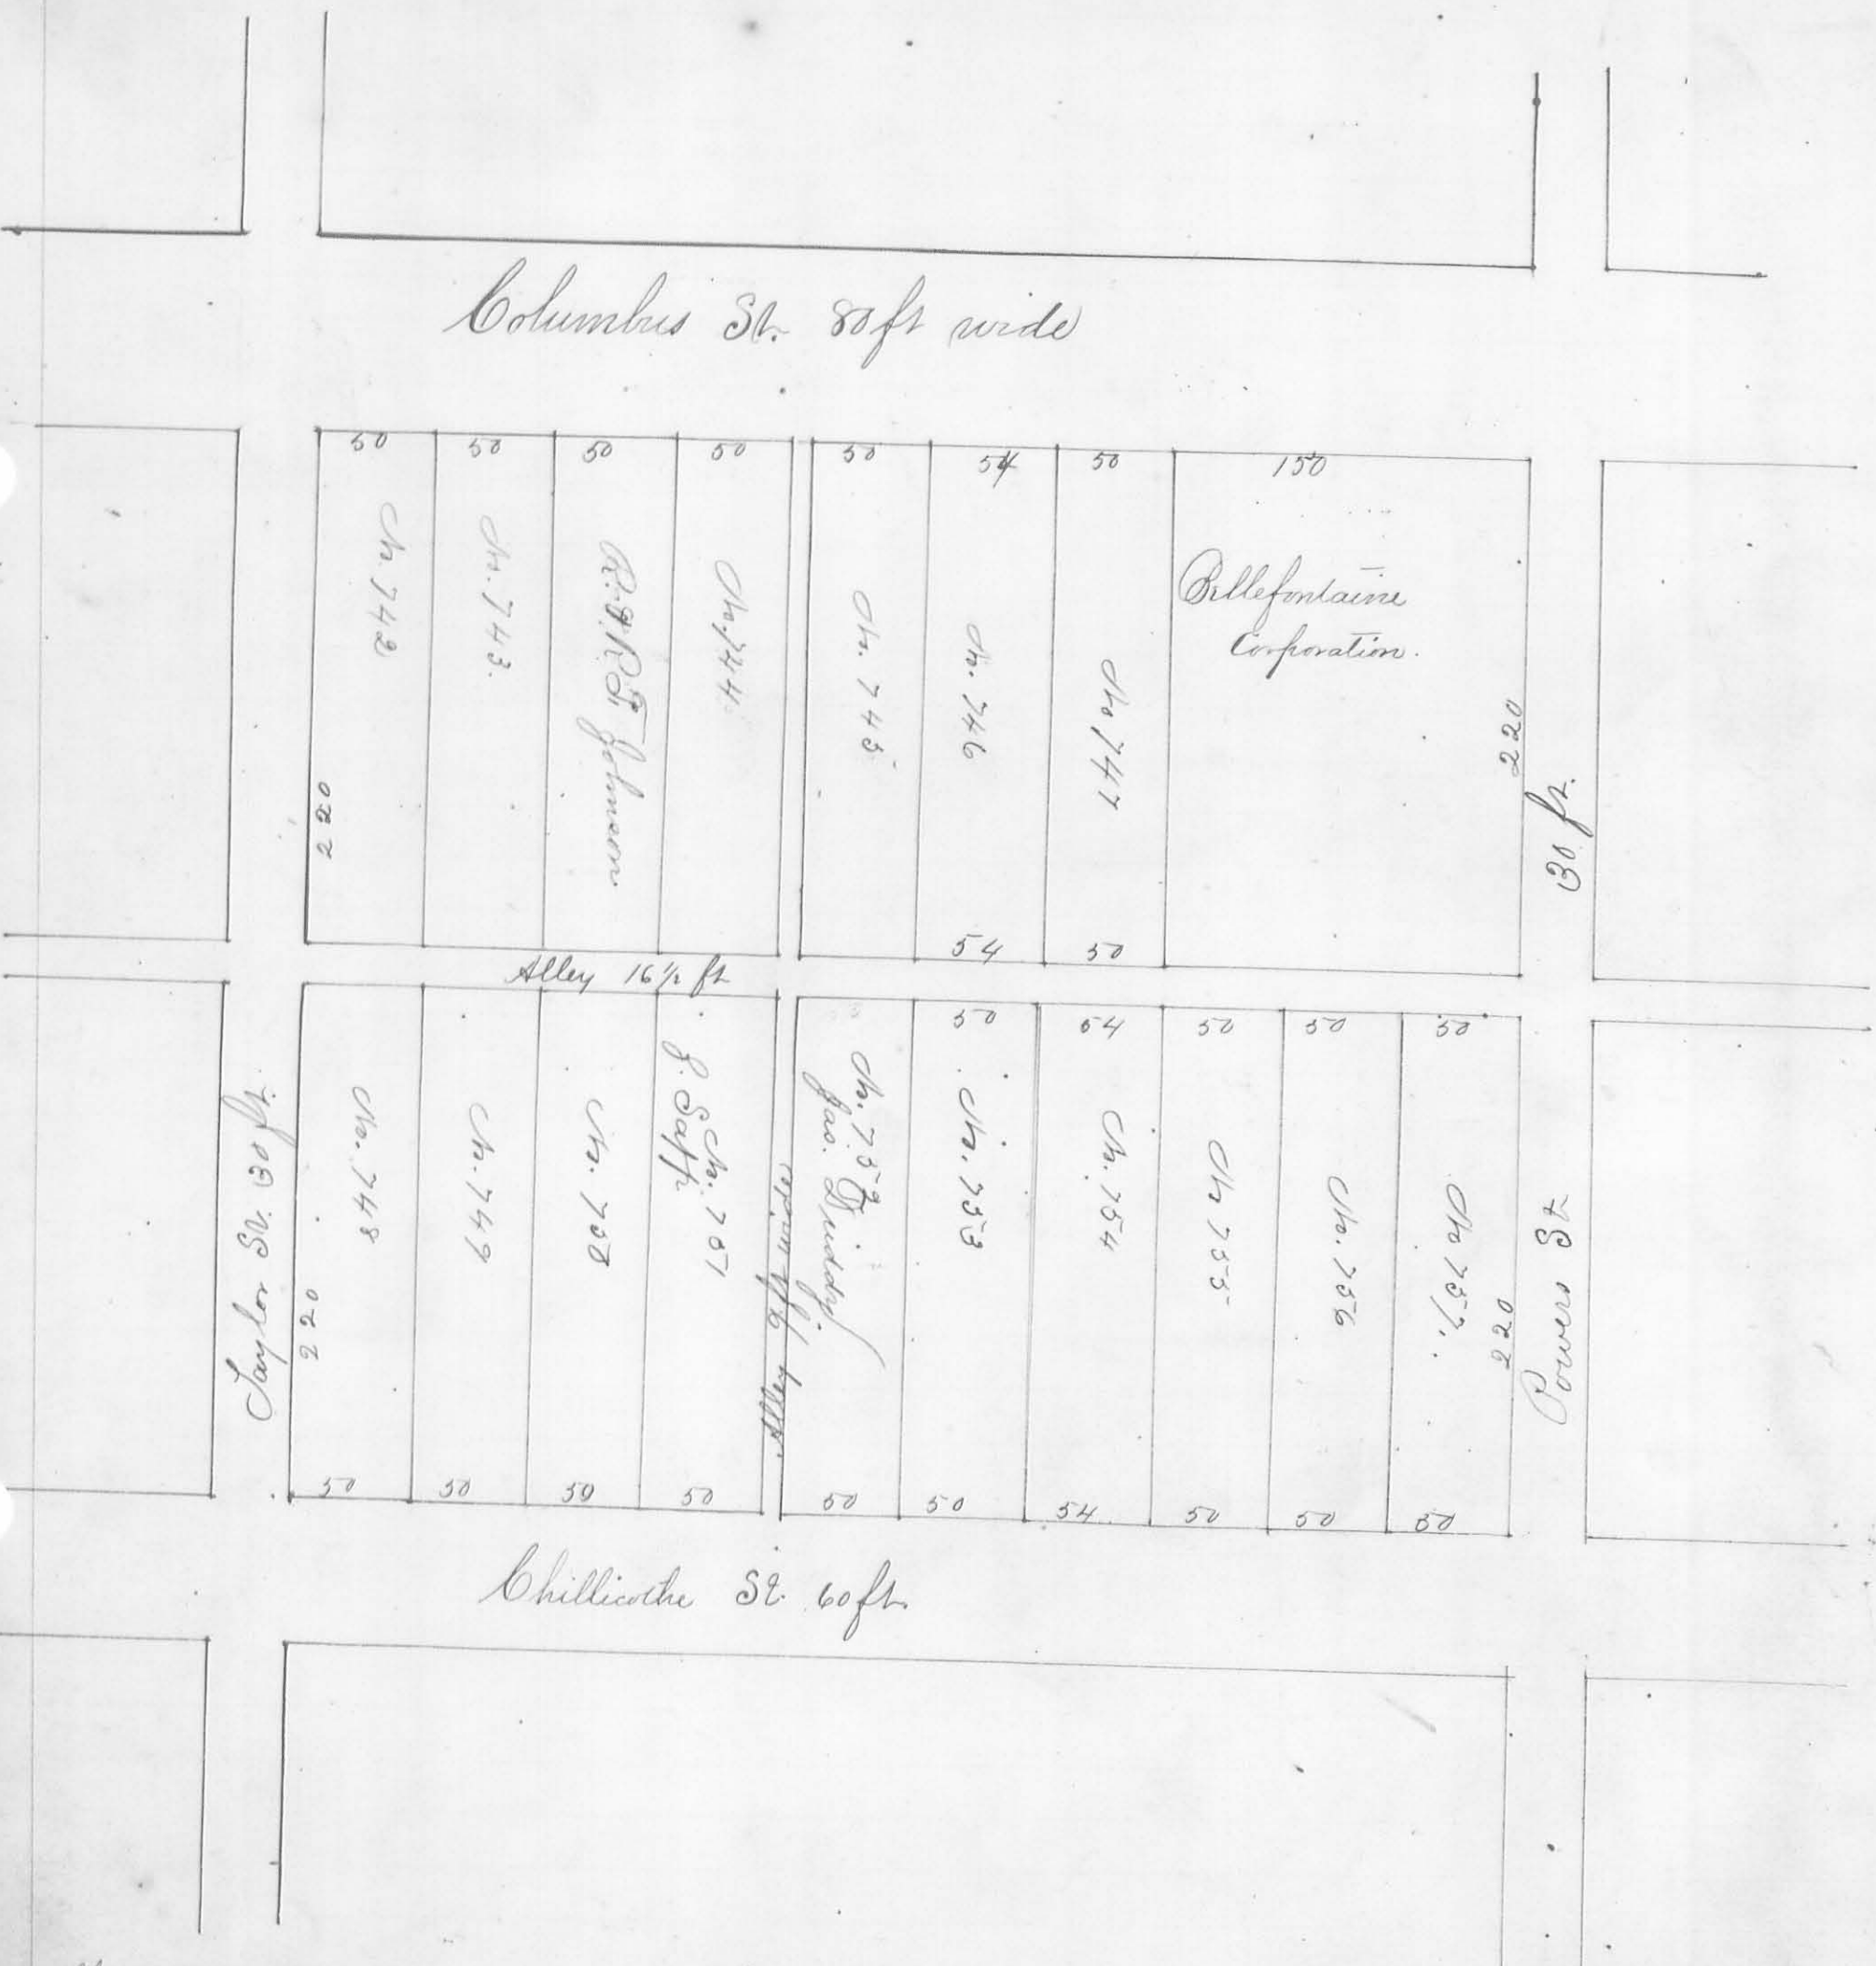 Columbus St. 80 ft wide
50
50
50
50
50
54
50
150
No. 742
No. 743.
Johnson
No. 744
No. 745
No. 746
No 747
Bellefontaine
Corporation.
220
220
30 ft.
54
50
Alley 16½ ft
50
54
50
50
50
Taylor St. 30 ft.
220
No. 748
No. 749
No. 750
No. 751
J.
Alley 6 ft wide
No. 752
Jas.
No. 753
No. 754
No 755
No. 756
No 757.
220
Powers St
50
50
50
50
50
50
54
50
50
50
Chillicothe St. 60 ft.